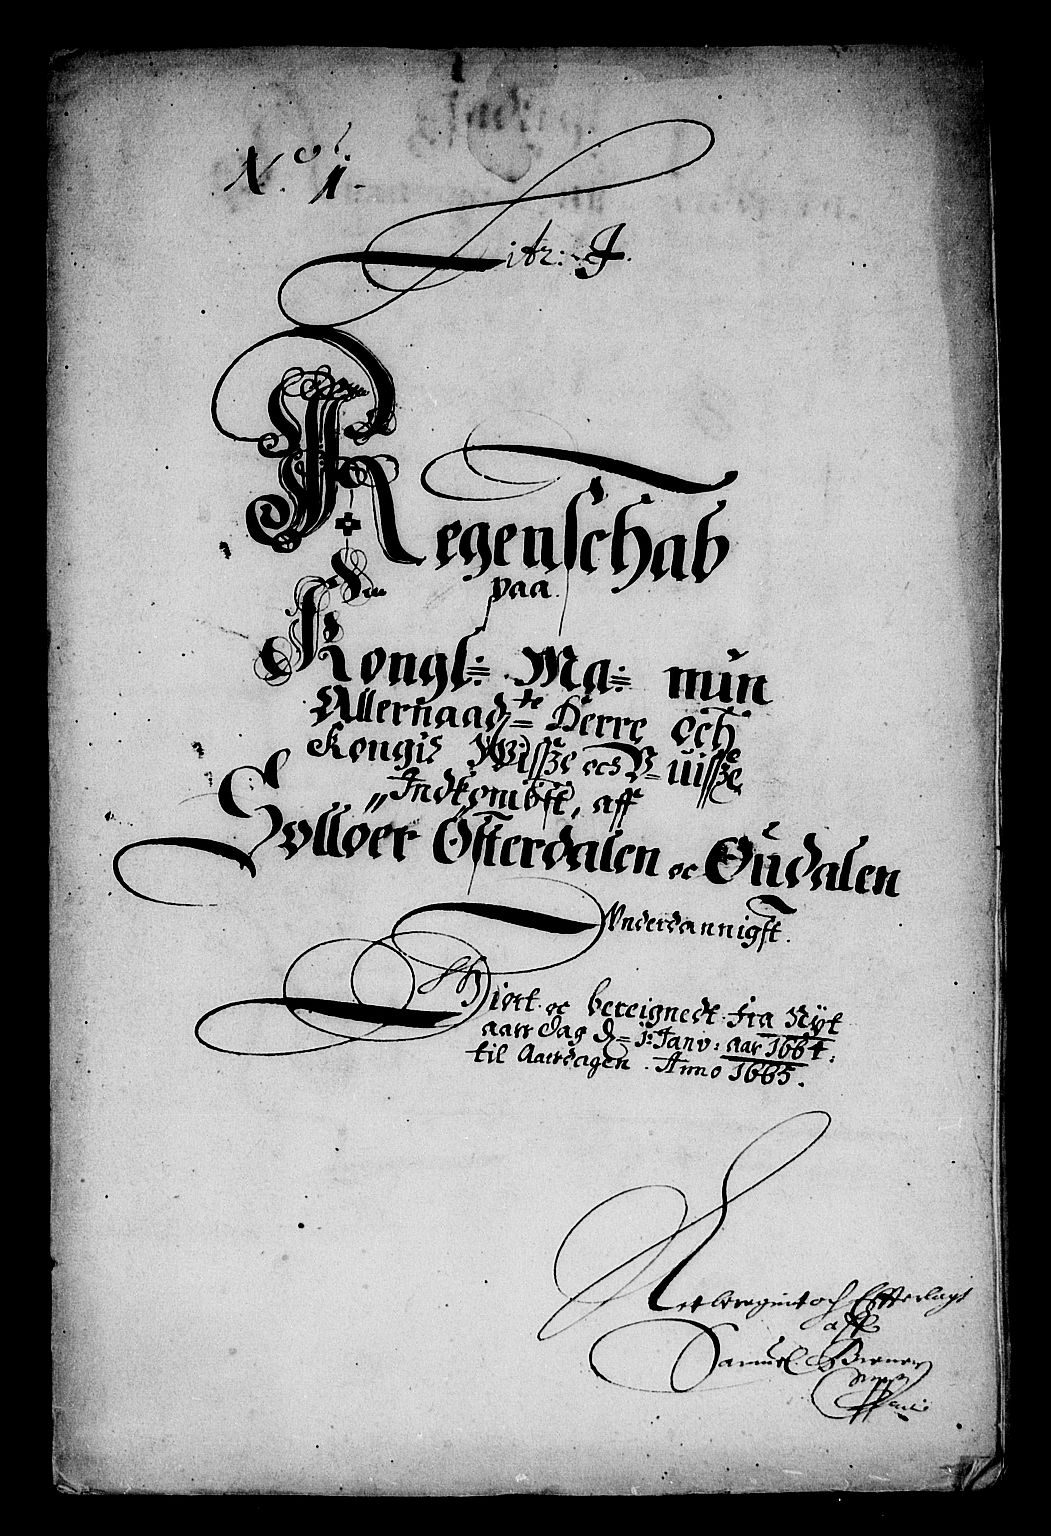 No. 1.
Litr: A.
Regenschab
paa
Kongl: Ma: min
Allernaadte Herre och
Kongis Wisse och U-uisse
Indkombst, aff
Solløer Østerdalen oc Oudalen
Underdannigst.
Giort oc bereignedt fra Nyt
aars dag d. 1: Janv: aar 1664:
til Aarsdagen Anno 1665.
och Effterlagt
aff
Samuel